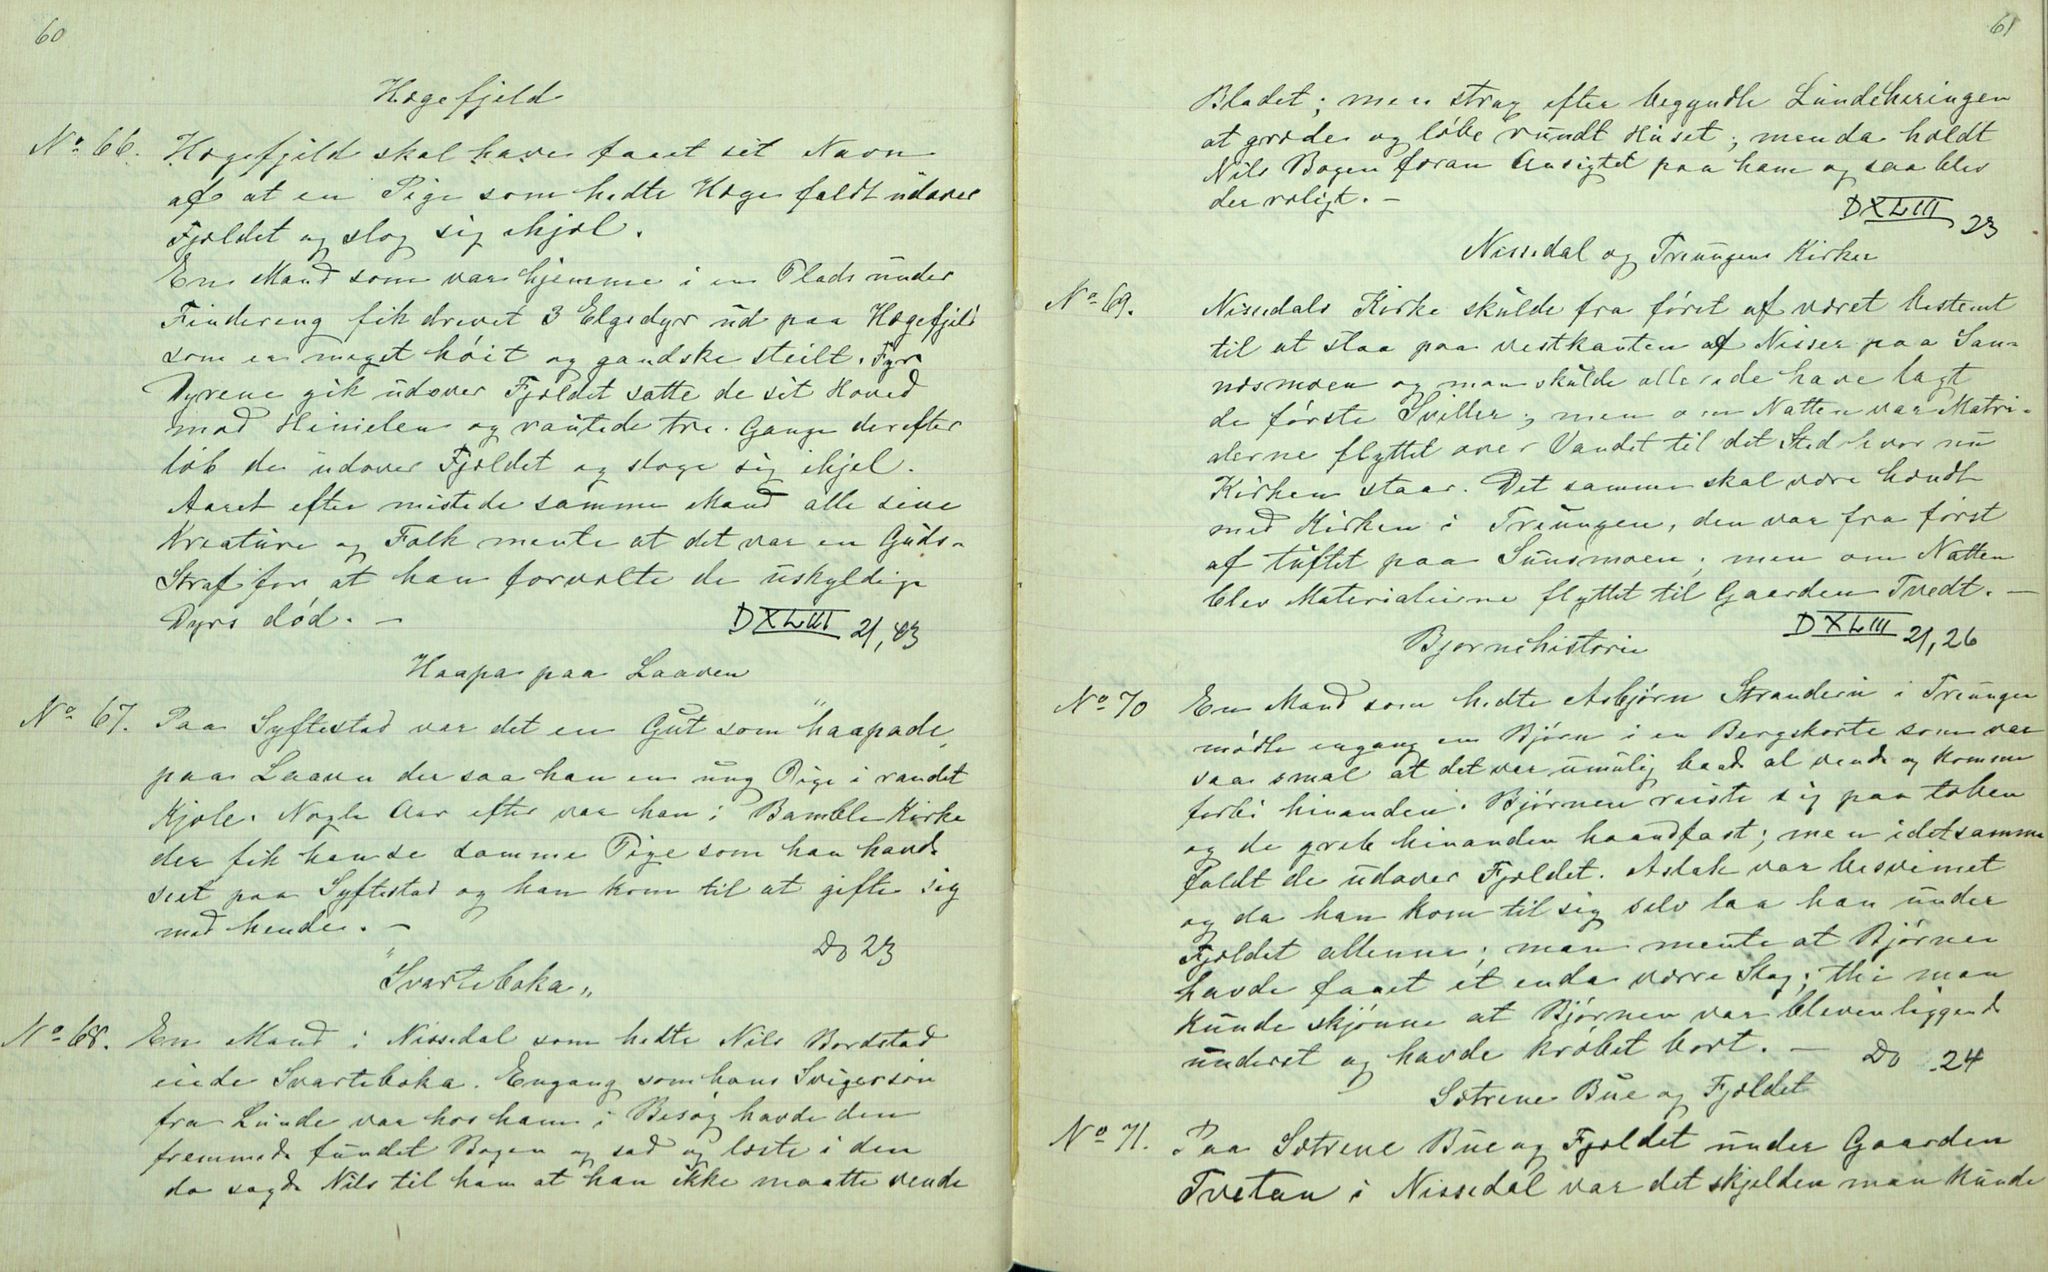 60
Hægefjeld
No 66. Hægefjeld skal have faaet sit Navn
af at en Pige som hedte Hæge faldt udover
Fjeldet og slog sig ihjel.
En Mand som var hjemme i en Plads under
Findereng fik drevet 3 Elgsdyr ud paa Hægefjeld
som er meget höit og gandske steilt. Før
Dyrene gik udover Fjeldet satte de sit Hoved
mod Himielen og rautede tre Gange derefter
löb de udover Fjeldet og sloge sig ihjel.
Aaret efter mistede samme Mand alle sine
Kreature og Folk mente at det var en Guds-
Straf for at han forvolte de uskyldige
Dyrs död. —
DXLIII 21, 23
Haapa paa Laaven
No 67. Paa Syftestad var det en Gut som "haapade"
paa Laaven der saa han en ung Pige i randet
Kjole. Nogle Aar efter var han i Bamble Kirke
der fik han se samme Pige som han havde
seet paa Syftestad og han kom til at gifte sig
med hende. —
Do 23
"Svarteboka"
No 68. En Mand i Nissedal som hedte Nils Bordstad
eiede Svarteboka. Engang som hans Svigersön
fra Lunde var hos ham i Besög havde den
fremmede fundet Bogen og sad og læste i den
da sagde Nils til ham at han ikke maatte vende
61
Bladet; men strax efter begyndte Lundeheringen
at græde og löbe rundt Huset; men da holdt
Nils Bogen foran Ansigtet paa ham og saa blev
der roligt. —
DXLIII 23
Nissedal og Treungens Kirker
No 69. Nissedals Kirke skulde fra först af været bestemt
til at staa paa vestkanten af Nisser paa San-
nesmoen og man skulde allerede have lagt
de förste Sviller; men om Natten var Matri-
alerne flyttet over Vandet til det Sted hvor nu
Kirken staar. Det samme skal være hændt
med Kirken i Treungen, den var fra först
af tuftet paa Sunsmoen; men om Natten
blev Materialierne flyttet til Gaarden Tvedt. —
DXLIII 21, 26
Bjørnehistorie
No 70 En Mand som hedte Asbjørn Strandern i Treungen
mødte engang en Bjørn i en Bergskorte som var
saa smal at det var umulig baade at vende og komme
forbi hinanden. Bjørnen reiste sig paa toben
og de greb hinanden haandfast; men i det samme
faldt de udover Fjeldet. Aslak var besvimet
og da han kom til sig selv laa han under
Fjeldet allenne; man mente at Björnen
havde faaet et enda værre Slag; thi man
kunde skjönne at Björnen var bleven liggende
underst og havde kröbet bort. —
Do 24
Sætrene Bue og Fjeldet
No 71. Paa Sætrene Bue og Fjeldet under Gaarden
Tvetan i Nissedal var det skjelden man kunde